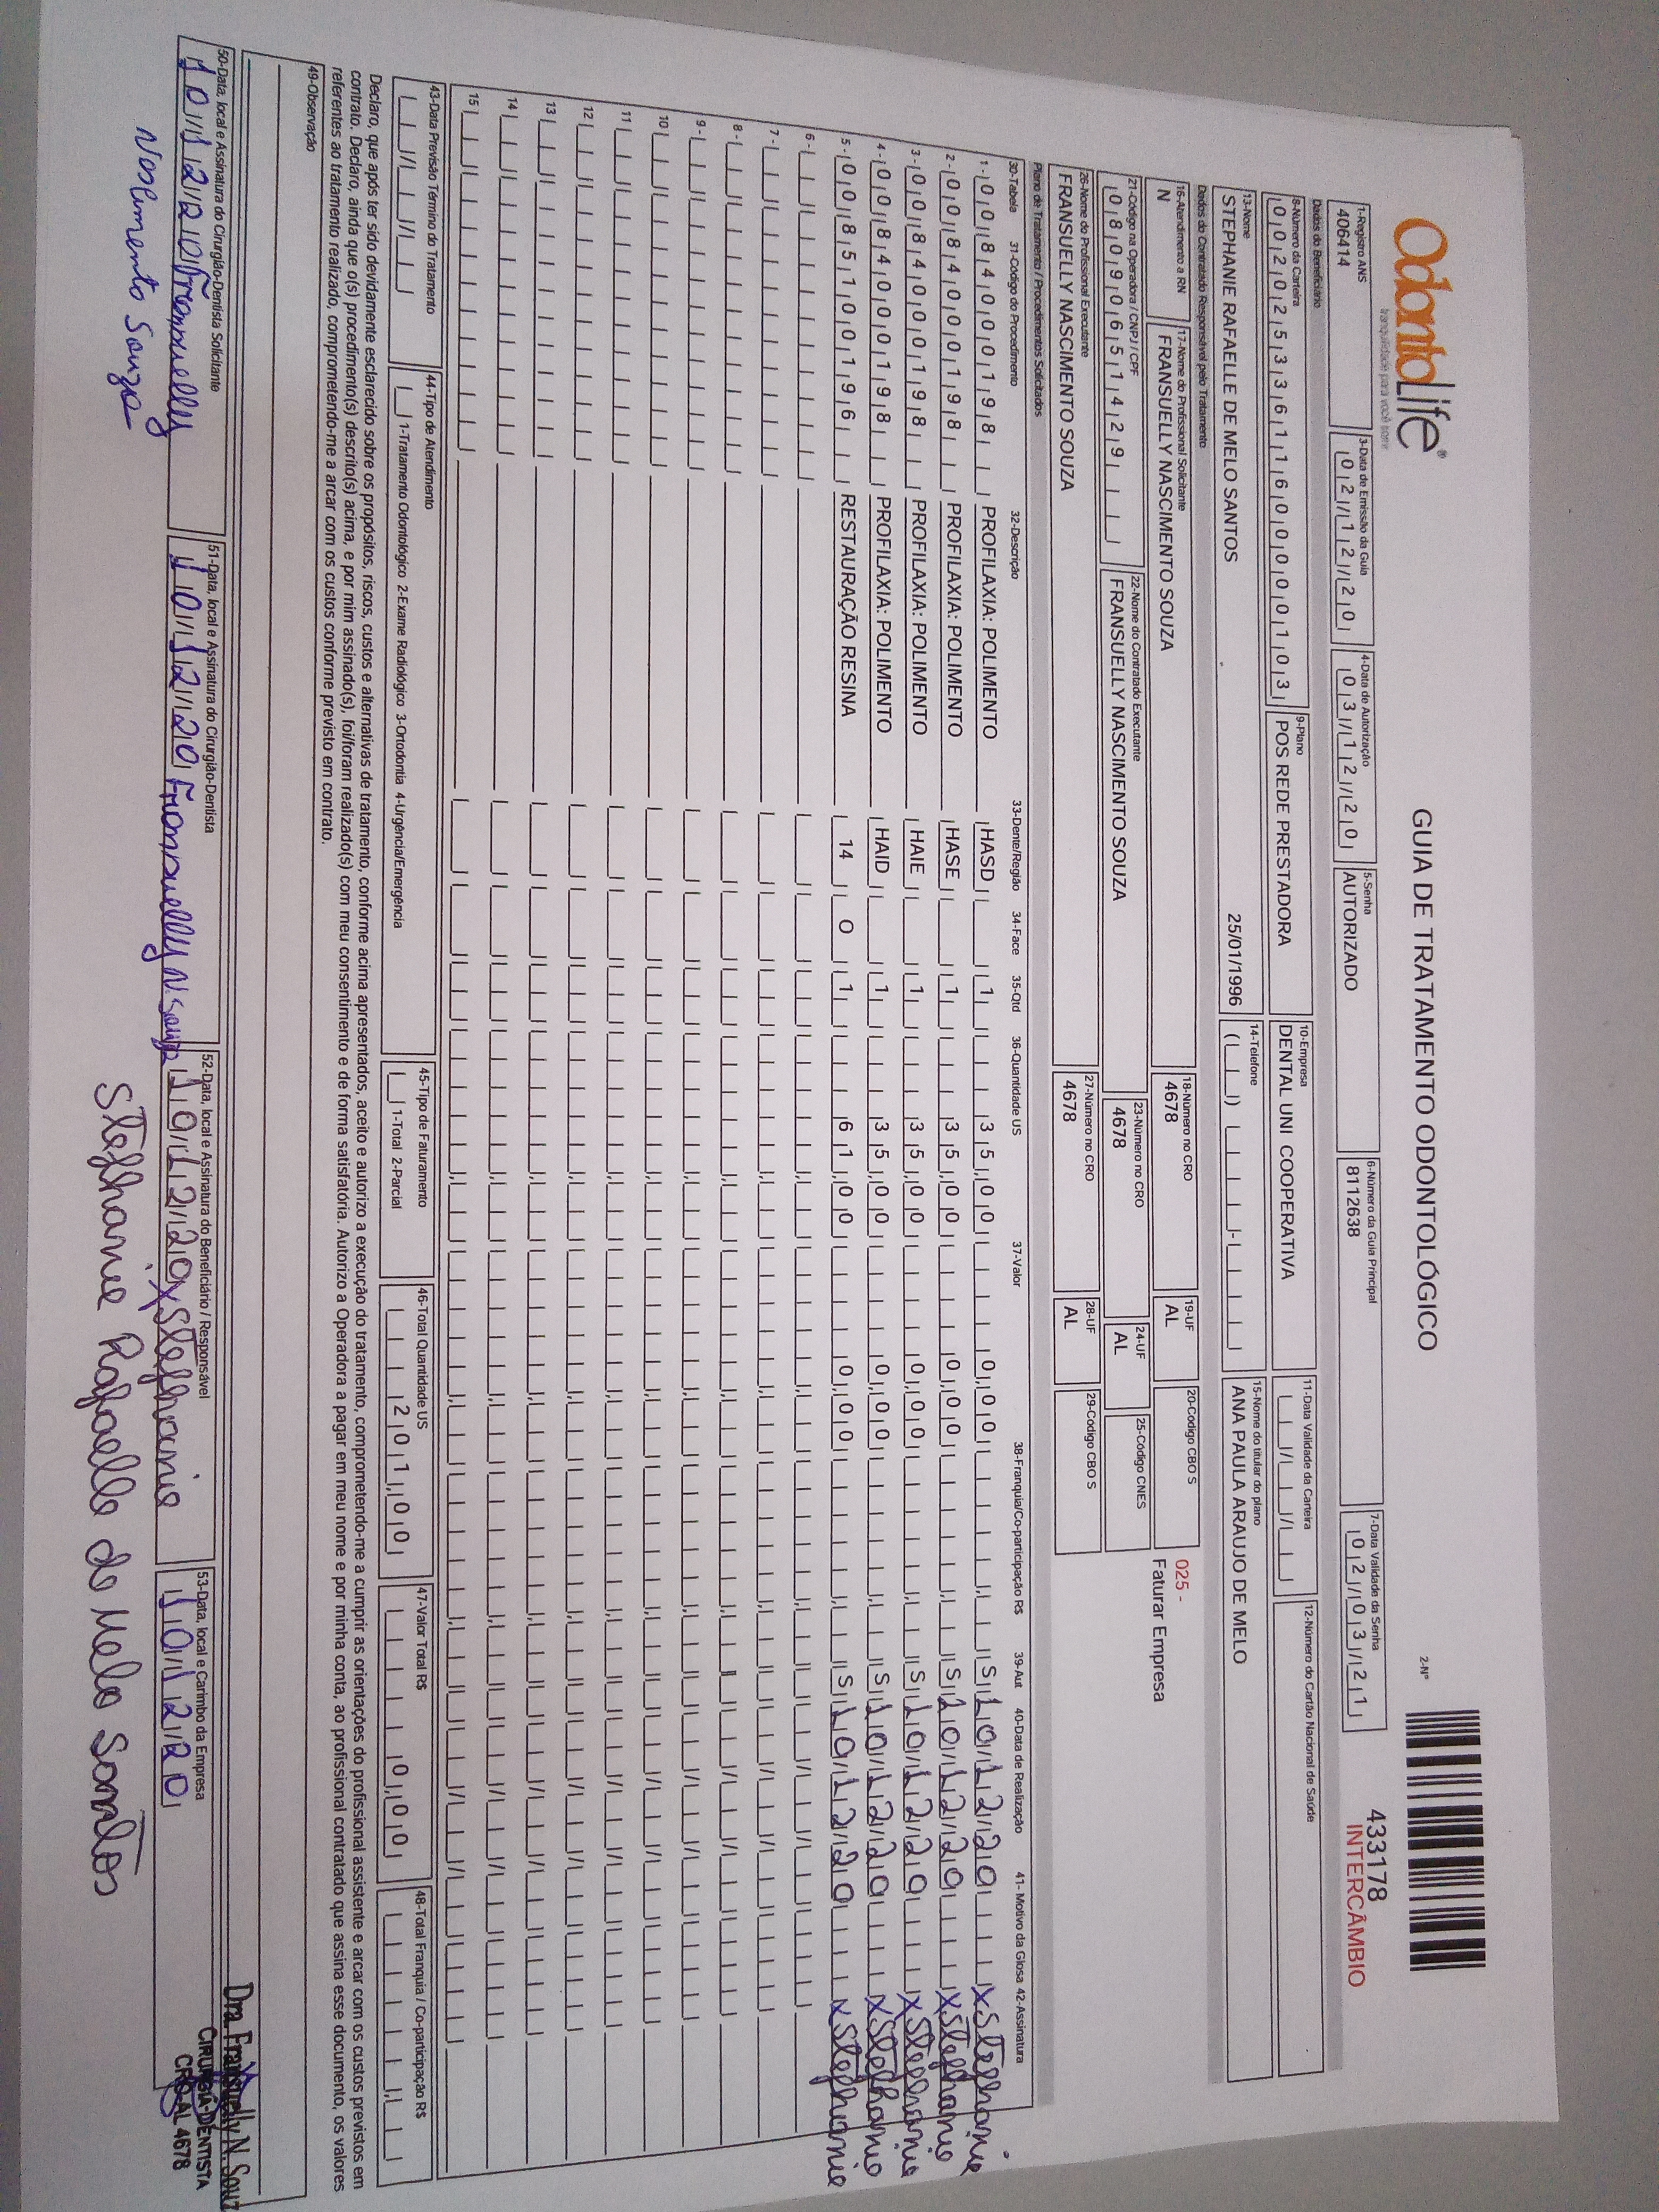 OdontoLife®
tranquilidade para você sorrir
GUIA DE TRATAMENTO ODONTOLÓGICO
2-Nº
433178
INTERCÂMBIO
1-Registro ANS 3-Data de Emissão da Guia 4-Data de Autorização 5-Senha 6-Número da Guia Principal 7-Data Validade da Senha
406414 02/12/20 03/12/20 AUTORIZADO 8112638 02/03/21
Dados do Beneficiário
8-Número da Carteira 9-Plano 10-Empresa 11-Data Validade da Carteira 12-Número do Cartão Nacional de Saúde
00202533611600000103 POS REDE PRESTADORA DENTAL UNI COOPERATIVA
13-Nome 14-Telefone 15-Nome do titular do plano
STEPHANIE RAFAELLE DE MELO SANTOS 25/01/1996 ANA PAULA ARAUJO DE MELO
Dados do Contratado Responsável pelo Tratamento
16-Atendimento a RN 17-Nome do Profissional Solicitante 18-Número no CRO 19-UF 20-Código CBO S
N FRANSUELLY NASCIMENTO SOUZA 4678 AL
025 -
Faturar Empresa
21-Código na Operadora / CNPJ / CPF 22-Nome do Contratado Executante 23-Número no CRO 24-UF 25-Código CNES
08090651429 FRANSUELLY NASCIMENTO SOUZA 4678 AL
26-Nome do Profissional Executante 27-Número no CRO 28-UF 29-Código CBO S
FRANSUELLY NASCIMENTO SOUZA 4678 AL
Plano de Tratamento / Procedimentos Solicitados
30-Tabela 31-Código do Procedimento 32-Descrição 33-Dente/Região 34-Face 35-Qtd 36-Quantidade US 37-Valor 38-Franquia/Co-participação R$ 39-Aut 40-Data de Realização 41- Motivo da Glosa 42-Assinatura
1 - 00 84000198 PROFILAXIA: POLIMENTO HASD 1 35,00 0,00 S 10/12/20 x Stephanie
2 - 00 84000198 PROFILAXIA: POLIMENTO HASE 1 35,00 0,00 S 10/12/20 x Stephanie
3 - 00 84000198 PROFILAXIA: POLIMENTO HAIE 1 35,00 0,00 S 10/12/20 x Stephanie
4 - 00 84000198 PROFILAXIA: POLIMENTO HAID 1 35,00 0,00 S 10/12/20 x Stephanie
5 - 00 85100196 RESTAURAÇÃO RESINA 14 O 1 61,00 0,00 S 10/12/20 x Stephanie
6 -
7 -
8 -
9 -
10
11
12
13
14
15
43-Data Previsão Término do Tratamento 44-Tipo de Atendimento 45-Tipo de Faturamento 46-Total Quantidade US 47-Valor Total R$ 48-Total Franquia / Co-participação R$
1-Tratamento Odontológico 2-Exame Radiológico 3-Ortodontia 4-Urgência/Emergência 1-Total 2-Parcial 201,00 0,00
Declaro, que após ter sido devidamente esclarecido sobre os propósitos, riscos, custos e alternativas de tratamento, conforme acima apresentados, aceito e autorizo a execução do tratamento, comprometendo-me a cumprir as orientações do profissional assistente e arcar com os custos previstos em
contrato. Declaro, ainda que o(s) procedimento(s) descrito(s) acima, e por mim assinado(s), foi/foram realizado(s) com meu consentimento e de forma satisfatória. Autorizo a Operadora a pagar em meu nome e por minha conta, ao profissional contratado que assina esse documento, os valores
referentes ao tratamento realizado, comprometendo-me a arcar com os custos conforme previsto em contrato.
49-Observação
50-Data, local e Assinatura do Cirurgião-Dentista Solicitante 51-Data, local e Assinatura do Cirurgião-Dentista 52-Data, local e Assinatura do Beneficiário / Responsável 53-Data, local e Carimbo da Empresa
10/12/20 Fransuelly 10/12/20 Fransuelly N. Souza 10/12/20 x Stephanie 10/12/20
Nascimento Souza
Stephanie Rafaelle de Melo Santos
Dra. Fransuelly N. Souz
CIRURGIÃ-DENTISTA
CRO-AL 4678